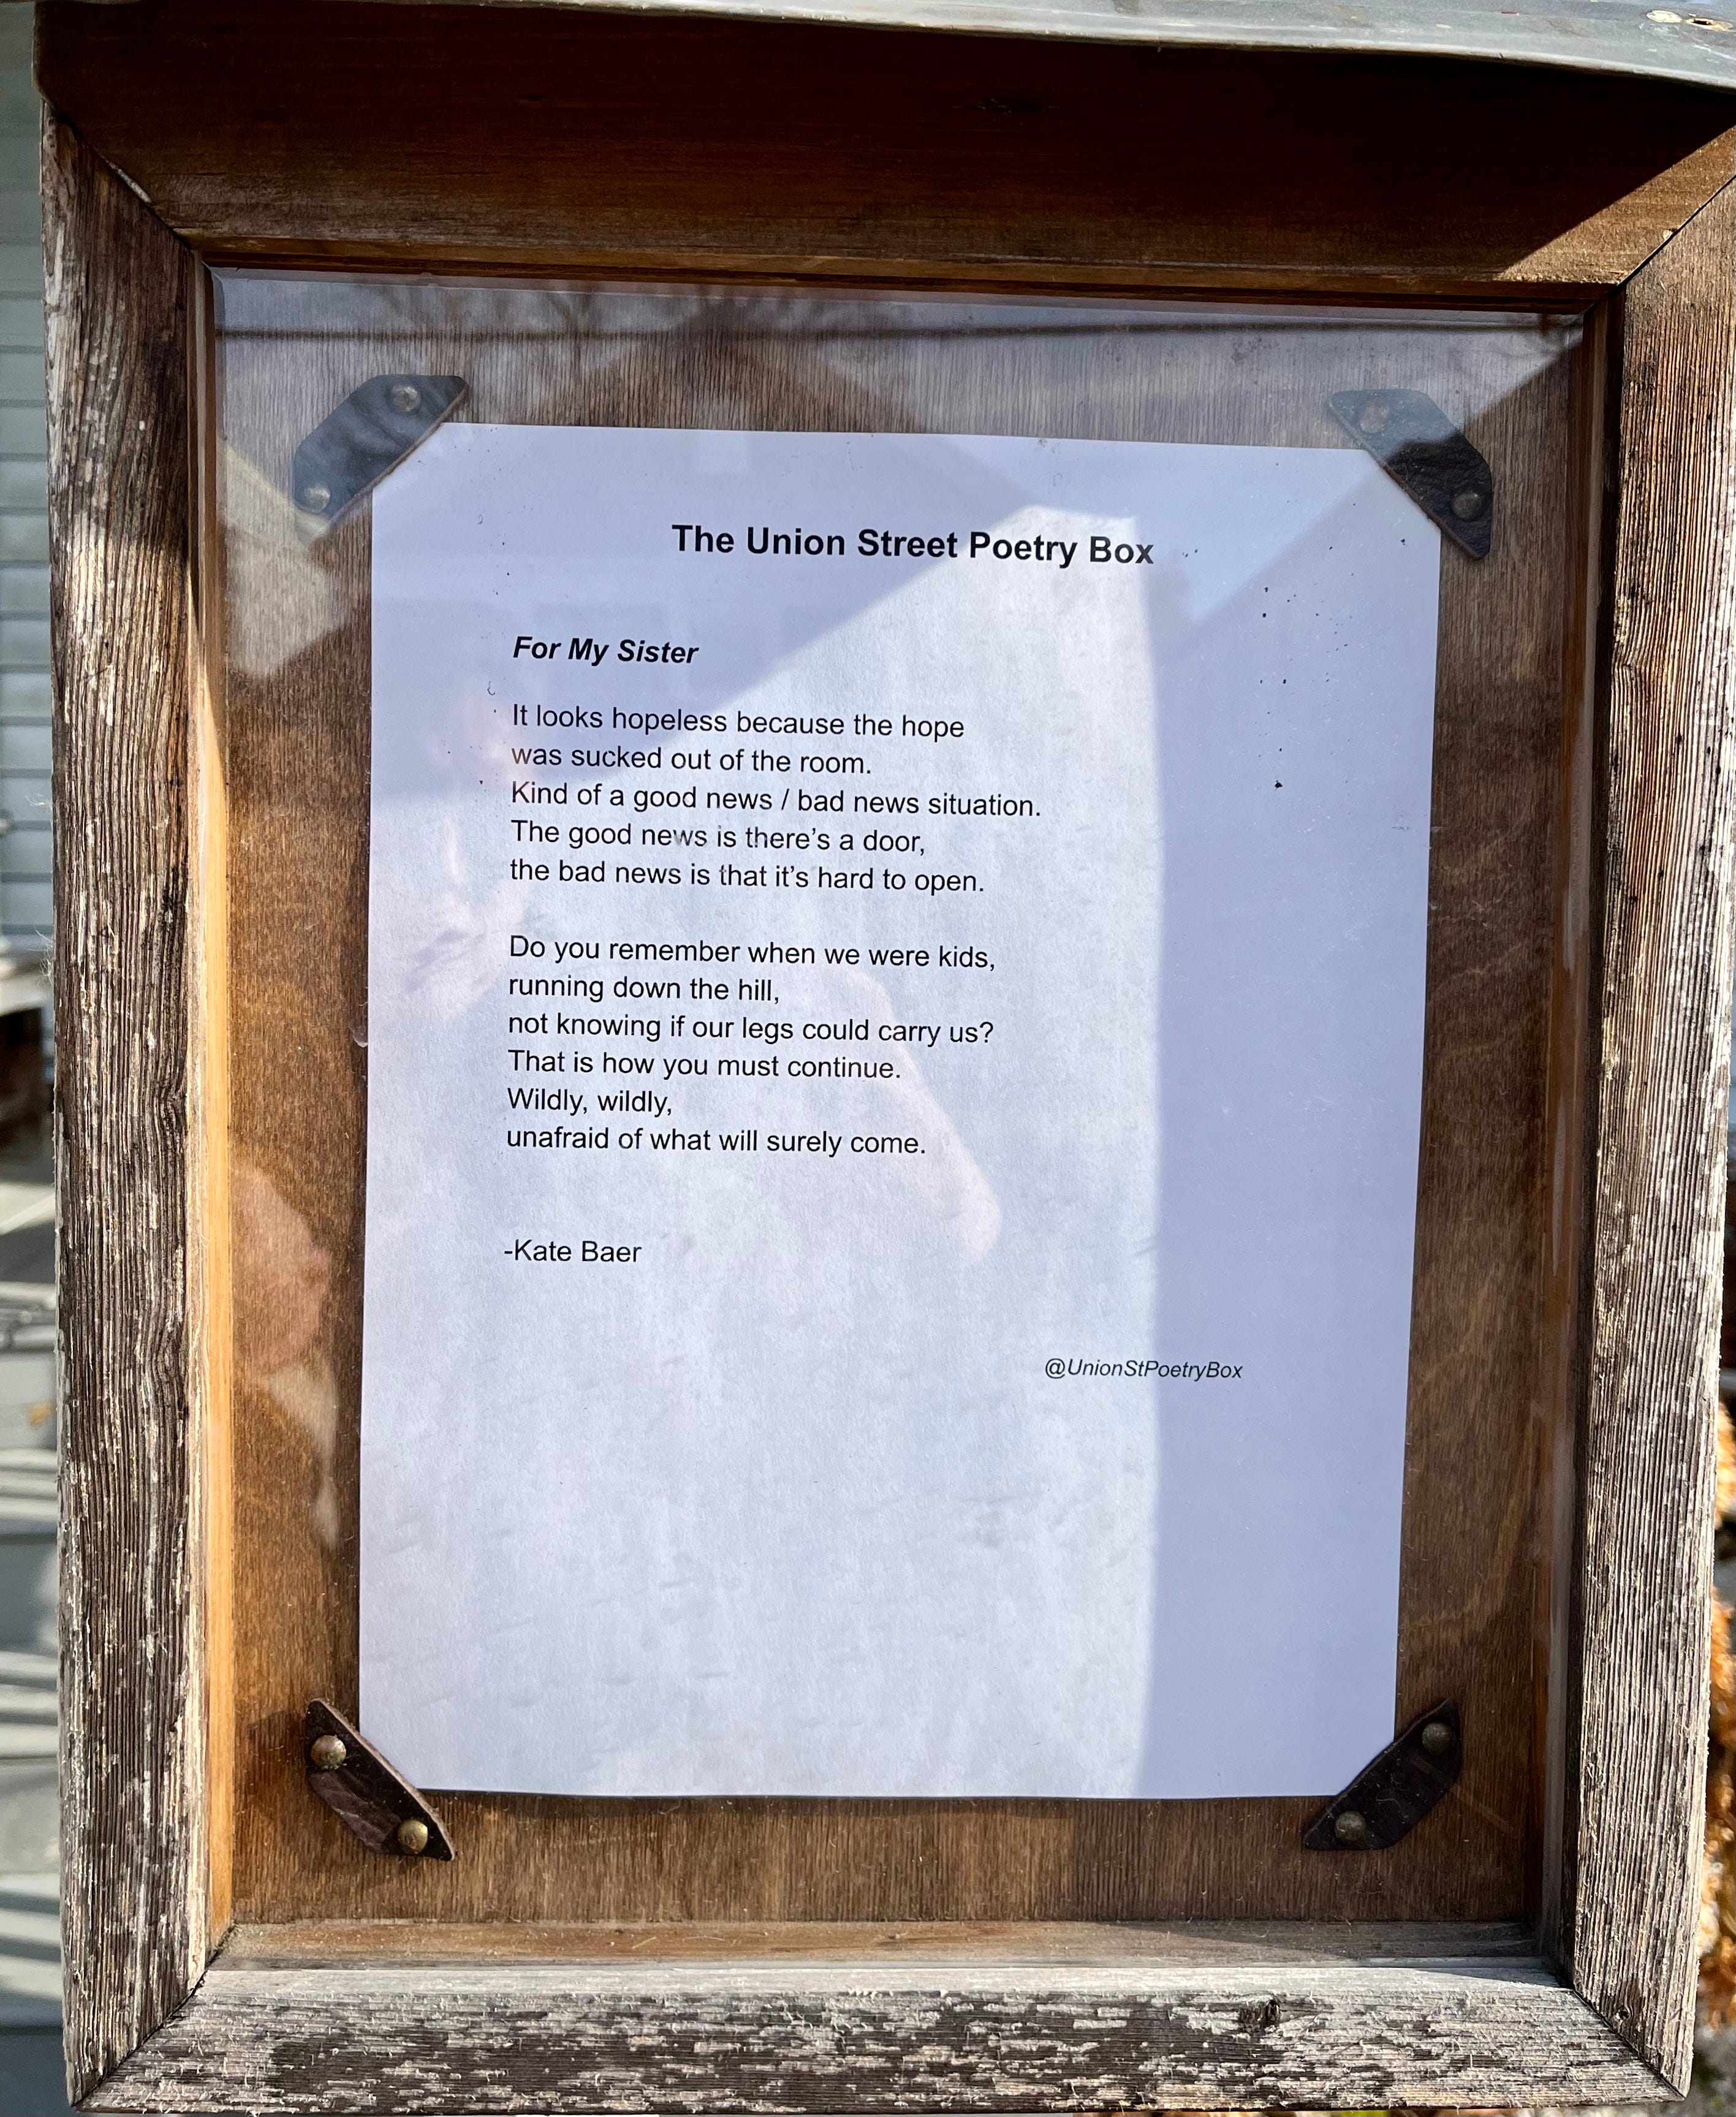 The Union Street Poetry Box
For My Sister
It looks hopeless because the hope
was sucked out of the room.
Kind of a good news / bad news situation.
The good news is there’s a door,
the bad news is that it’s hard to open.
Do you remember when we were kids,
running down the hill,
not knowing if our legs could carry us?
That is how you must continue.
Wildly, wildly,
unafraid of what will surely come.
-Kate Baer
@UnionStPoetryBox